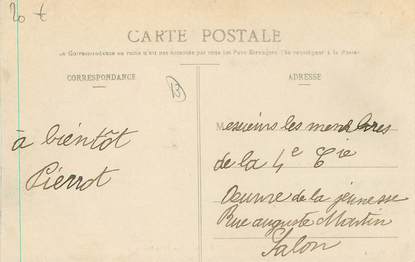 20 t
CARTE POSTALE
La Correspondance au recto n'est pas acceptée par tous les Pays Étrangers (Se renseigner à la Poste)
CORRESPONDANCE
ADRESSE
13
à bientôt
Pierrot
Messieurs les membres
de la 4e Cie
Œuvre de la jeunesse
Rue auguste Martin
Salon